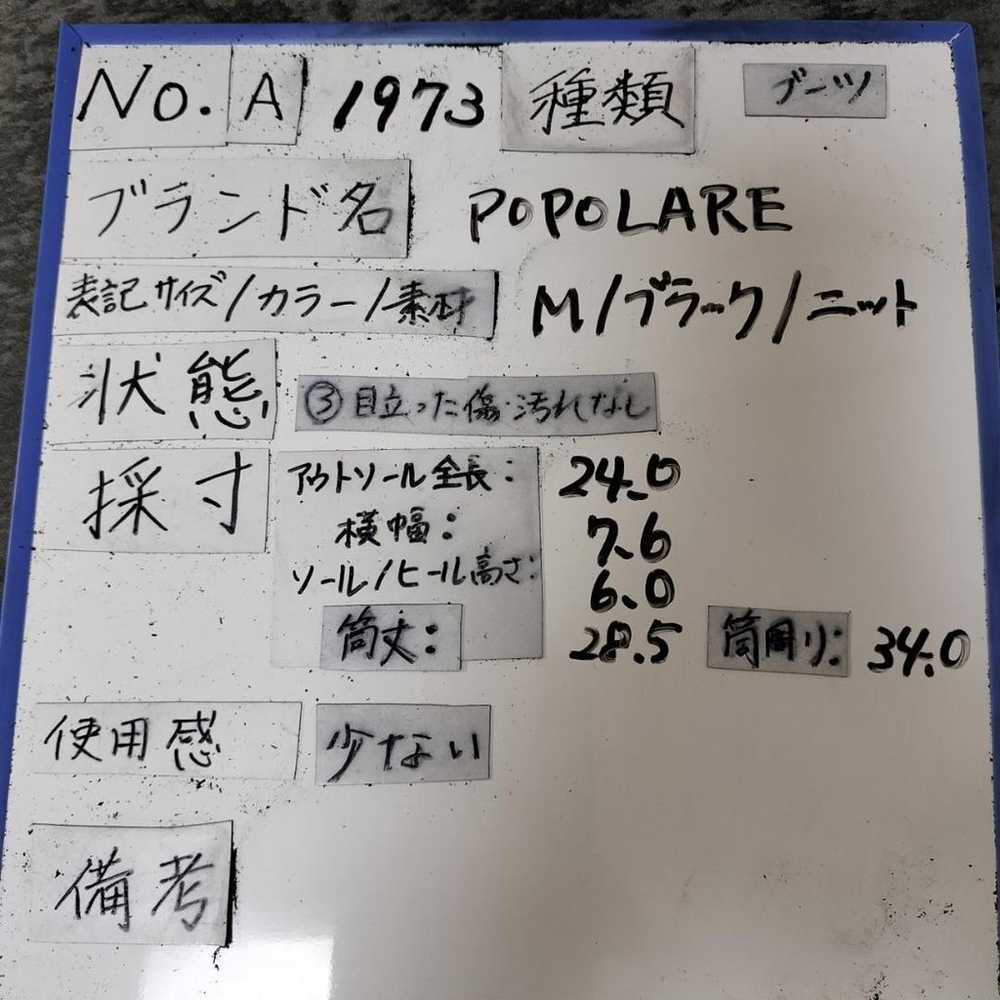 No. A 1973 種類 ブーツ
ブランド名 POPOLARE
表記サイズ/カラー/素材 M/ブラック/ニット
状態 ③目立った傷・汚れなし
採寸 アウトソール全長: 24.0
横幅: 7.6
ソール/ヒール高さ: 6.0
筒丈: 28.5 筒周り: 34.0
使用感 少ない
備考